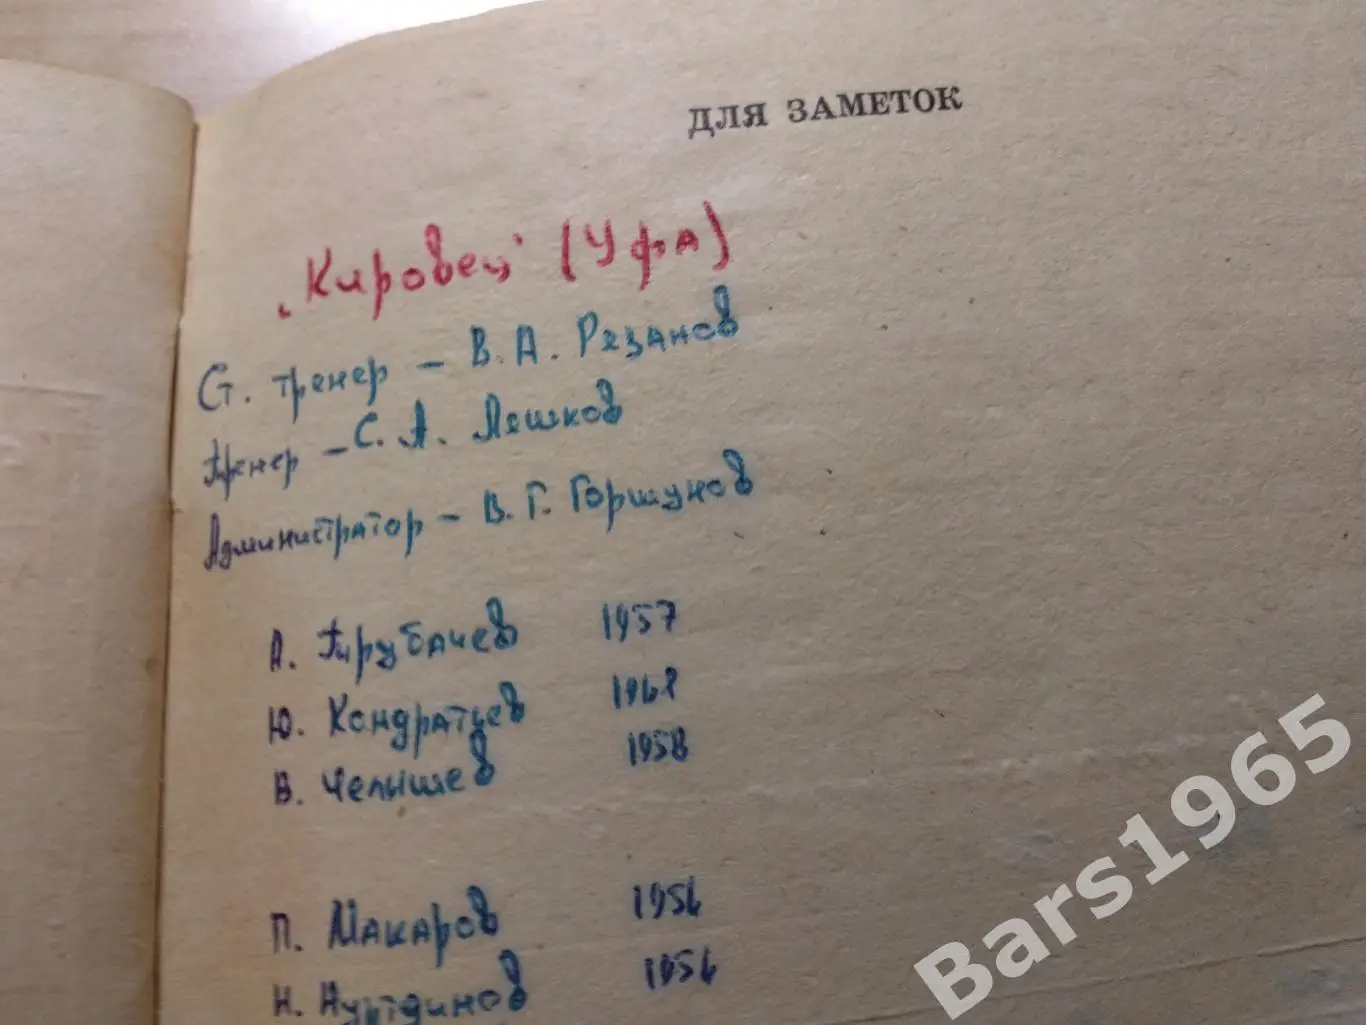 ДЛЯ ЗАМЕТОК
„Кировец" (Уфа)
Ст. тренер – В. А. Рязанов
Тренер – С. А. Ляшков
Администратор – В. Г. Горшунов
А. Трубачев 1957
Ю. Кондратьев 1961
В. Челышев 1958
П. Макаров 1956
Н. 1956
Bars1965